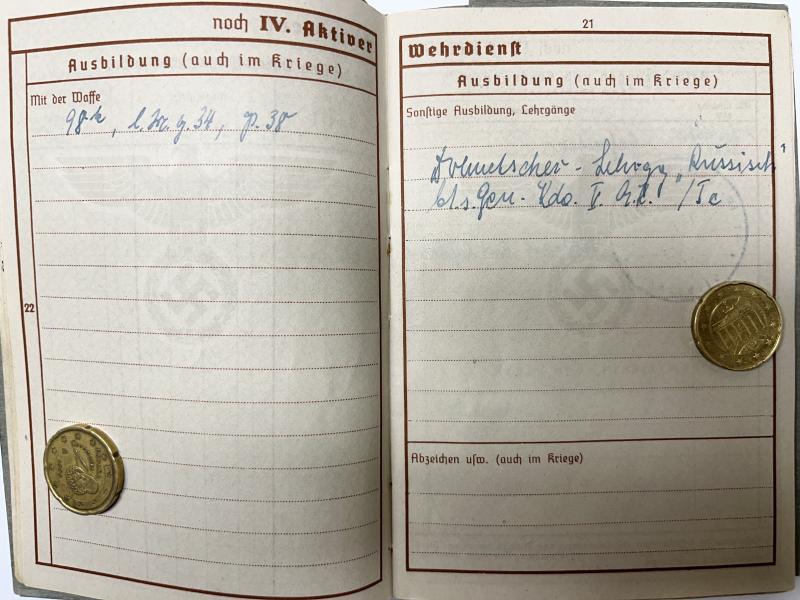 noch IV. Aktiver
Ausbildung (auch im Kriege)
Mit der Waffe
98k, l.M.g.34, p.38
22
21
Wehrdienst
Ausbildung (auch im Kriege)
Sonstige Ausbildung, Lehrgänge
Dolmetscher-Lehrgg "Russisch"
b. Gen. Kdo. V. A.K. /Ic
Abzeichen usw. (auch im Kriege)